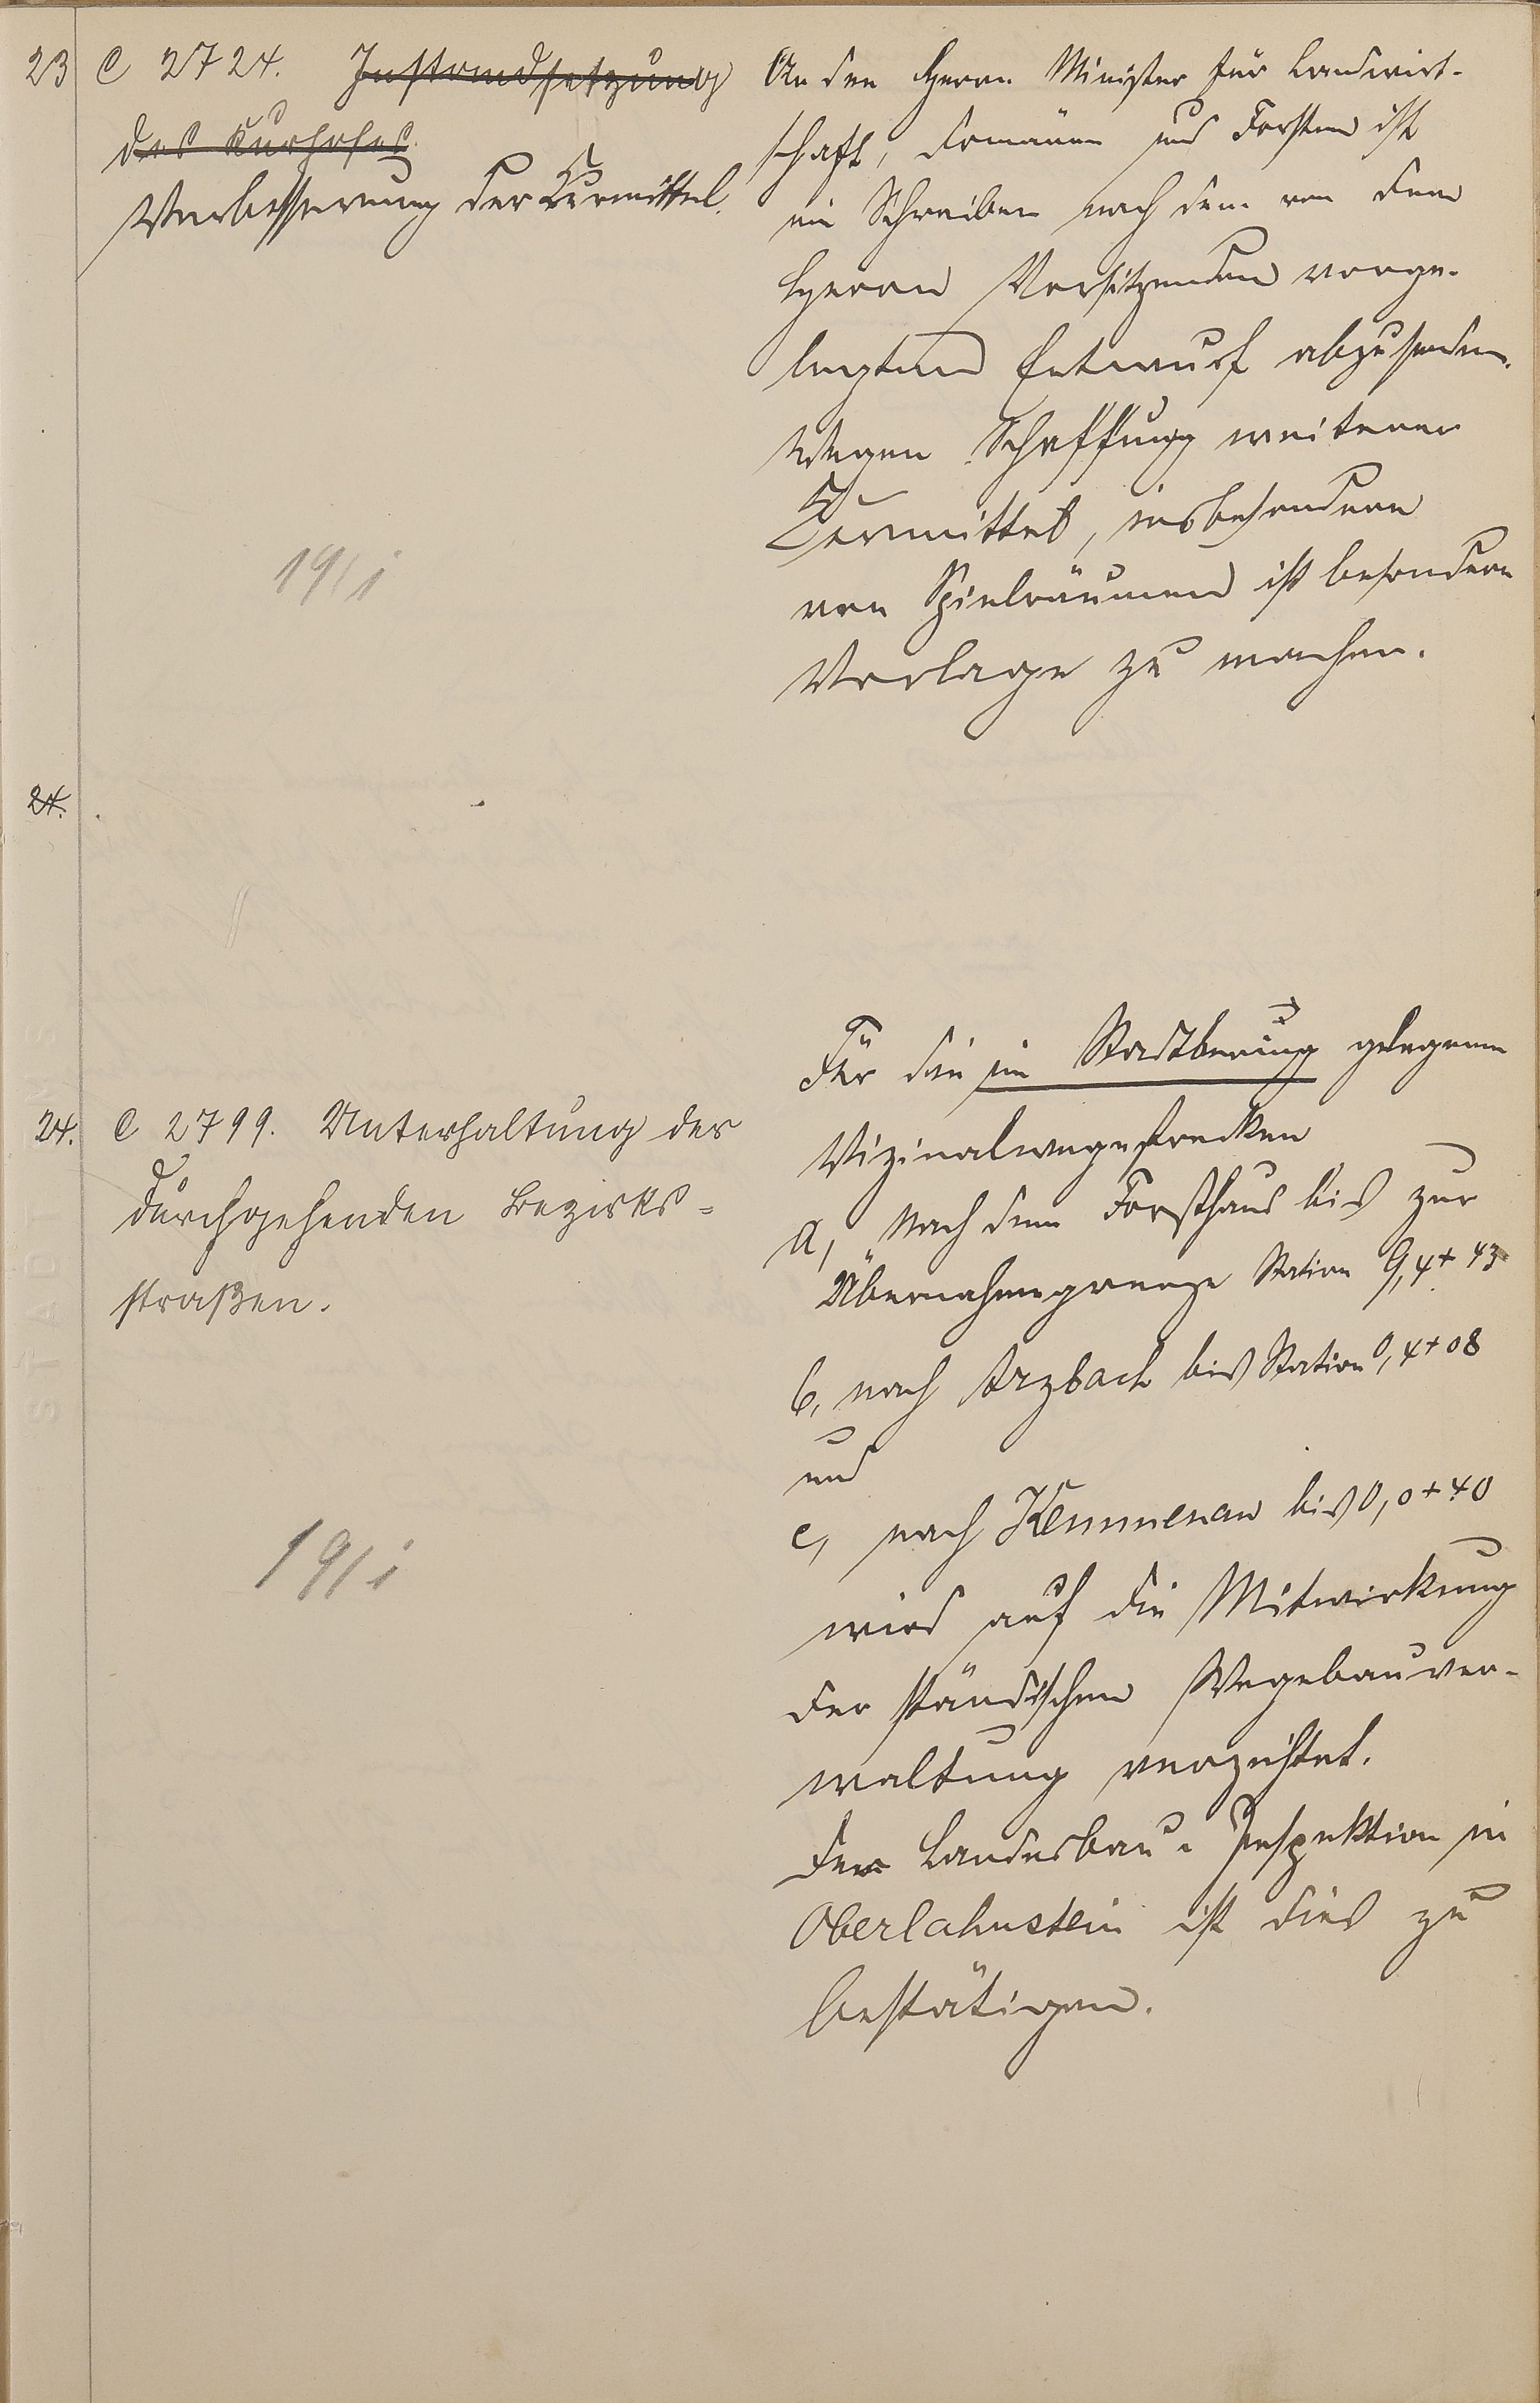 23
C 2724. Instandsetzung
des Kurhofes
Verbesserung der Kurmittel.
An den Herrn Minister für Landwirt-
schaft, Domänen und Forsten ist
ein Schreiben nach dem von dem
Herrn Vorsitzenden vorge-
legten Entwurf abzusenden.
Wegen Schaffung weiterer
Kurmittel, insbesondere
von Spielräumen ist besondere
Vorlage zu machen.
19/i
24.
24.
C 2799. Unterhaltung der
durchgehenden Bezirks-
straßen.
19/i
Für die im Stadtbering gelegenen
Vizinalwegestrecken
a, nach dem Forsthaus bis zur
Übernahmegrenze Station 9,4+43
b, nach Arzbach bis Station 0,4+08
und
c, nach Kemmenau bis 0,0+40
wird auf die Mitwirkung
der ständischen Wegebauver-
waltung verzichtet.
Der Landesbau-Inspektion in
Oberlahnstein ist dies zu
bestätigen.